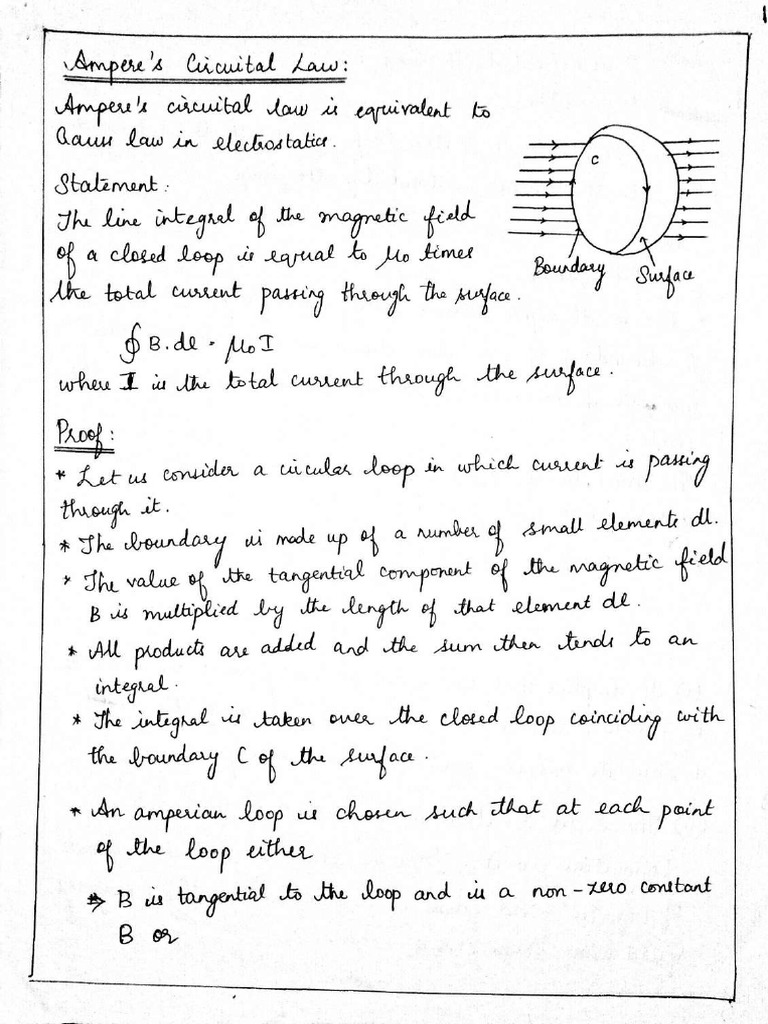 1
Ampere's Circuital Law:
Ampere's circuital law is equivalent to
Gauss law in electrostatics.
Statement:
The line integral of the magnetic field
of a closed loop is equal to μ0 times
the total current passing through the surface.
C
Boundary
Surface
∮ B.dl = μ0 I
where I is the total current through the surface.
Proof:
* Let us consider a circular loop in which current is passing
through it.
* The boundary is made up of a number of small elements dl.
* The value of the tangential component of the magnetic field
B is multiplied by the length of that element dl.
* All products are added and the sum then tends to an
integral.
* The integral is taken over the closed loop coinciding with
the boundary C of the surface.
* An amperian loop is chosen such that at each point
of the loop either
⇒ B is tangential to the loop and is a non-zero constant
B or